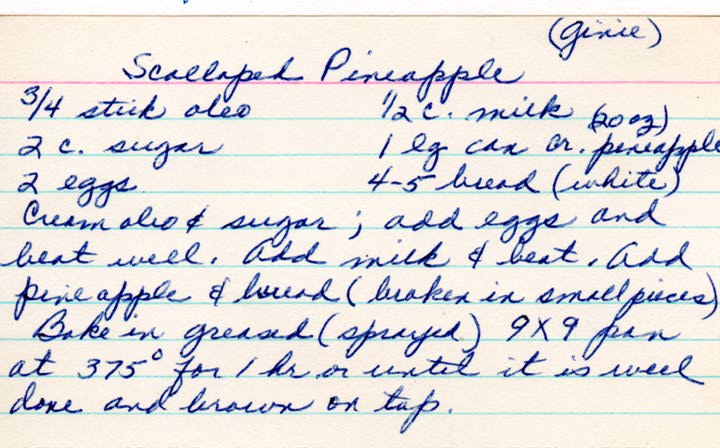 (Ginie)
Scalloped Pineapple
3/4 stick oleo 1/2 c. milk
2 c. sugar 1 lg can cr. pineapple (20 oz)
2 eggs 4-5 bread (white)
Cream oleo & sugar; add eggs and
beat well. Add milk & beat. Add
pineapple & bread (broken in small pieces)
Bake in greased (sprayed) 9X9 pan
at 375° for 1 hr or until it is well
done and brown on top.